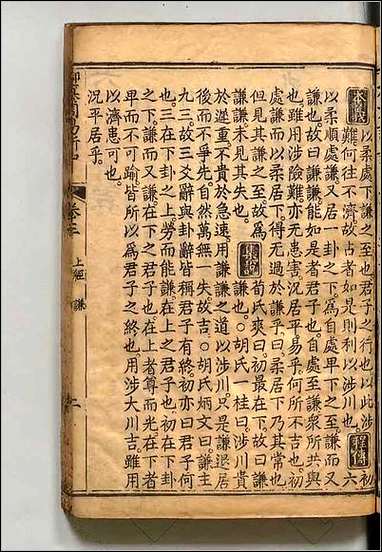 本義
以柔處下謙之至也君子之行也以此涉
難何往不濟故占者如是則利以涉川也
程傳
初
六
以柔順處謙又居一卦之下為自處卑下之至謙而又
謙也故曰謙謙能如是者君子也自處至謙眾所共與
也雖用涉險難亦无患害況居平易乎何所不吉也初
處謙而以柔居下得无過於謙乎曰柔居下乃其常也
但見其謙之至故為
謙謙未見其失也
集說
荀氏爽曰初最在下故曰謙
謙也○胡氏一桂曰涉川貴
於遲重不貴於急速用謙之道以涉川只是謙退居
後而不爭先自然萬無一失故吉○胡氏炳文曰謙主
九三故三爻辭與卦辭皆稱君子有終初亦曰君子何
也三在下卦之上勞而能謙在上之君子也初在下卦
之下謙而又謙在下之君子也在上者尊而光在下者
卑而不可踰皆所以為君子之終也用涉大川吉雖用
以濟患可也
況平居乎
御纂周易折中
卷三
上經 謙